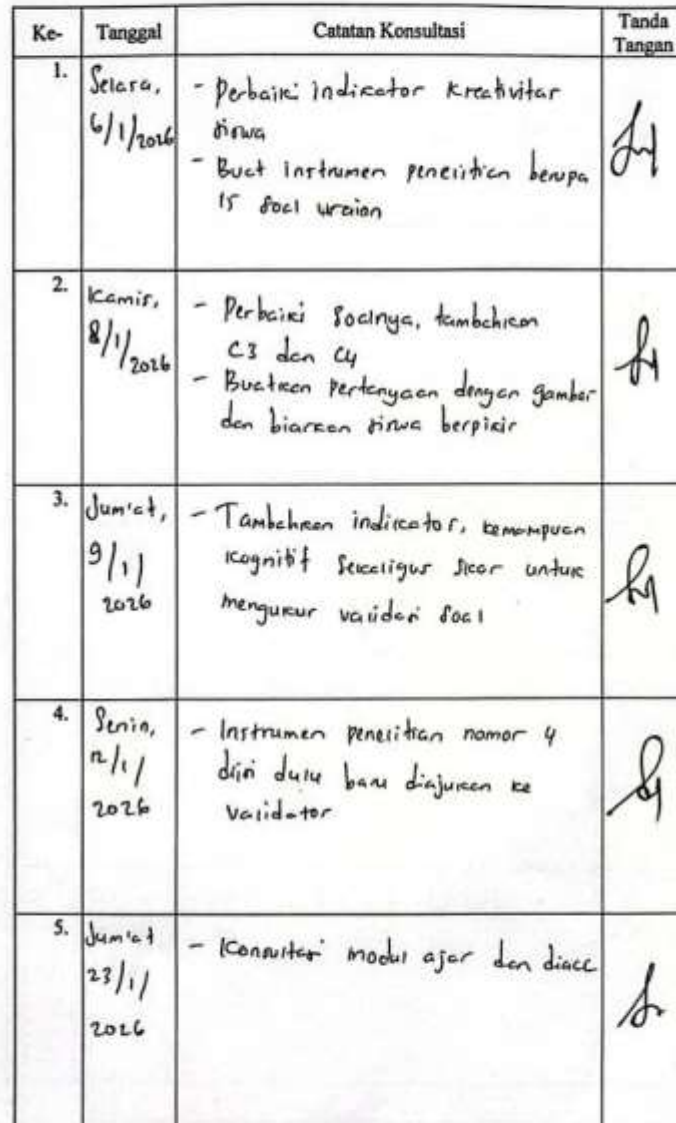 Ke- Tanggal Catatan Konsultasi Tanda Tangan
1. Selasa, 6/1/2026
- Perbaiki indikator kreativitas
siswa
- Buat instrumen penelitian berupa
15 soal uraian
2. Kamis, 8/1/2026
- Perbaiki soalnya, tambahkan
C3 dan C4
- Buatkan pertanyaan dengan gambar
dan biarkan siswa berpikir
3. Jum'at, 9/1/2026
- Tambahkan indikator, kemampuan
kognitif sekaligus skor untuk
mengukur validasi soal
4. Senin, 12/1/2026
- Instrumen penelitian nomor 4
diisi dulu baru diajukan ke
validator
5. Jum'at 23/1/2026
- Konsultasi modul ajar dan diacc